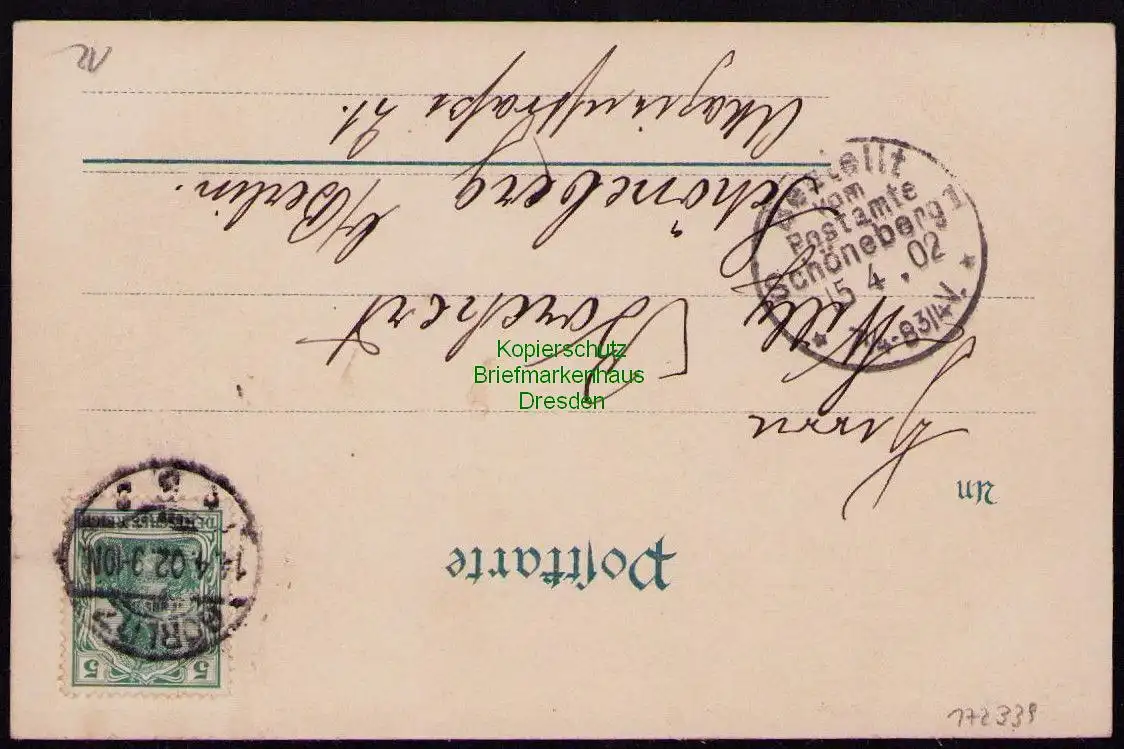 Postkarte
An
Herrn
Willy Borchert
Schöneberg b/Berlin.
Akazienstraße 21.
Bestellt
vom
Postamte
Schöneberg 1
15 4 . 02
* 7¼-8¾V. *
DEUTSCHES REICH
5 5
GÖRLITZ
14.4.02.9-10N.
Kopierschutz
Briefmarkenhaus
Dresden
172339